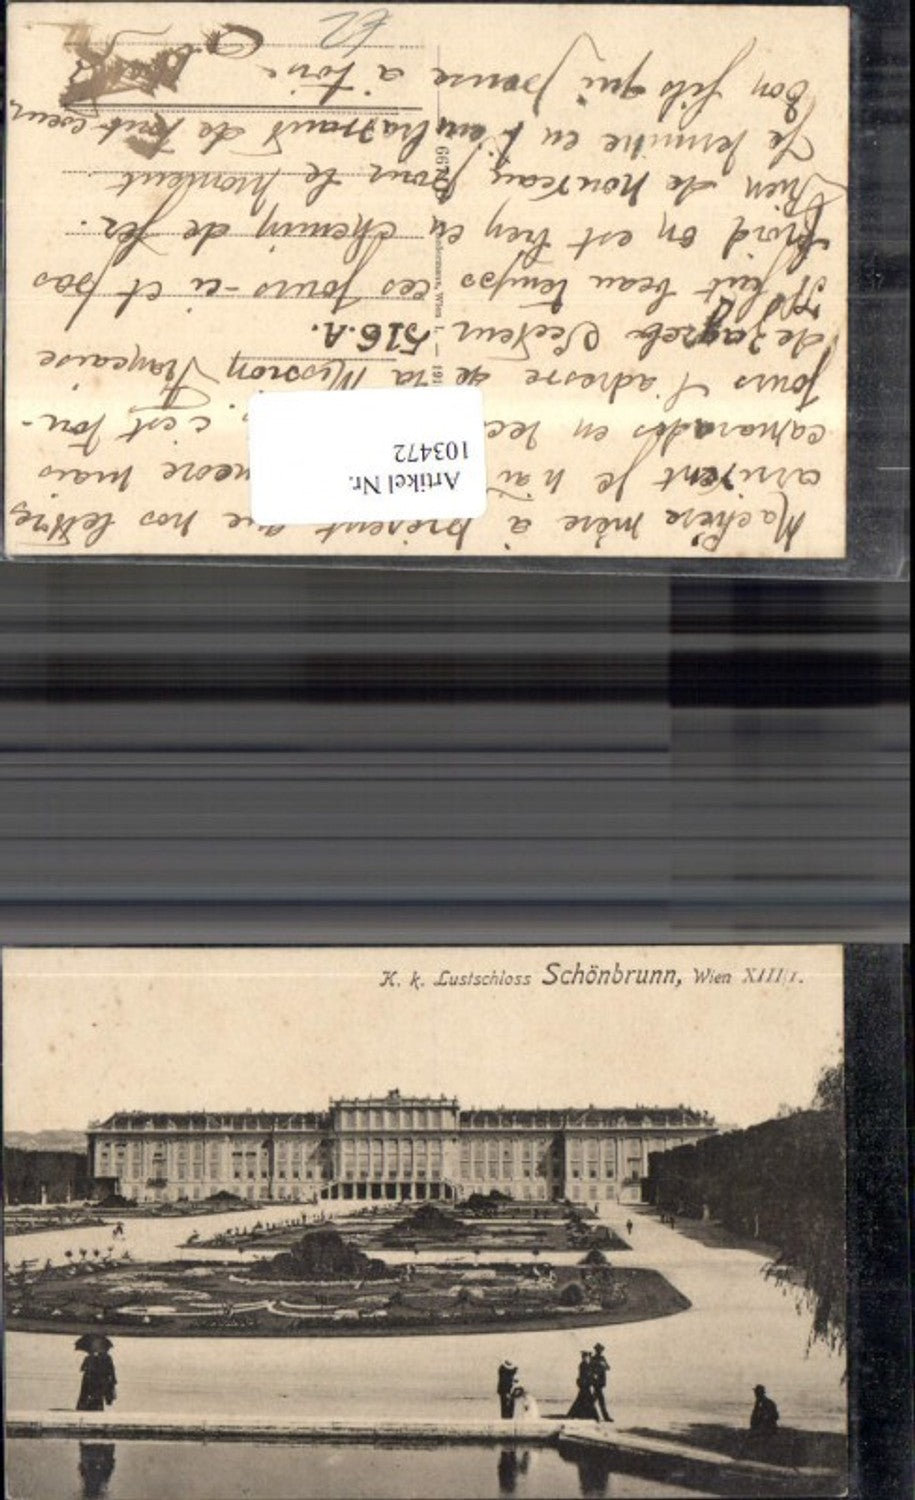 Ma chère mère à présent que nos lettres
arrivent je n'ai encore mais
camarades en c'est tou-
jours l'adresse de la Mission française
de Zagreb Secteur 516.A.
Il fait beau temps ces jours-ci et pas
froid on est bien en chemin de fer.
Rien de nouveau pour le moment
Je termine en t'embrassant de tout coeur
Ton fils qui pense à toi.
Artikel Nr.
103472
K. k. Lustschloss Schönbrunn, Wien XIII/1.